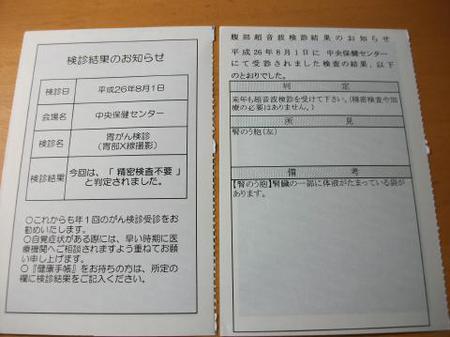 検診結果のお知らせ
検診日
平成26年8月1日
会場名
中央保健センター
検診名
胃がん検診
(胃部X線撮影)
検診結果
今回は、「 精密検査不要 」
と判定されました。
〇これからも年1回のがん検診受診をお
勧めいたします。
〇自覚症状がある際には、早い時期に医
療機関へご相談されますよう重ねてお願
い申し上げます。
〇『健康手帳』をお持ちの方は、所定の
欄に検診結果をご記入ください。
腹部超音波検診結果のお知らせ
平成26年8月1日に 中央保健センター
にて受診されました検査の結果、以下
のとおりでした。
判 定
来年も超音波検診を受けて下さい。(精密検査や治
療の必要はありません。)
所 見
腎のう胞(左)
備 考
【腎のう胞】腎臓の一部に体液がたまっている袋が
あります。